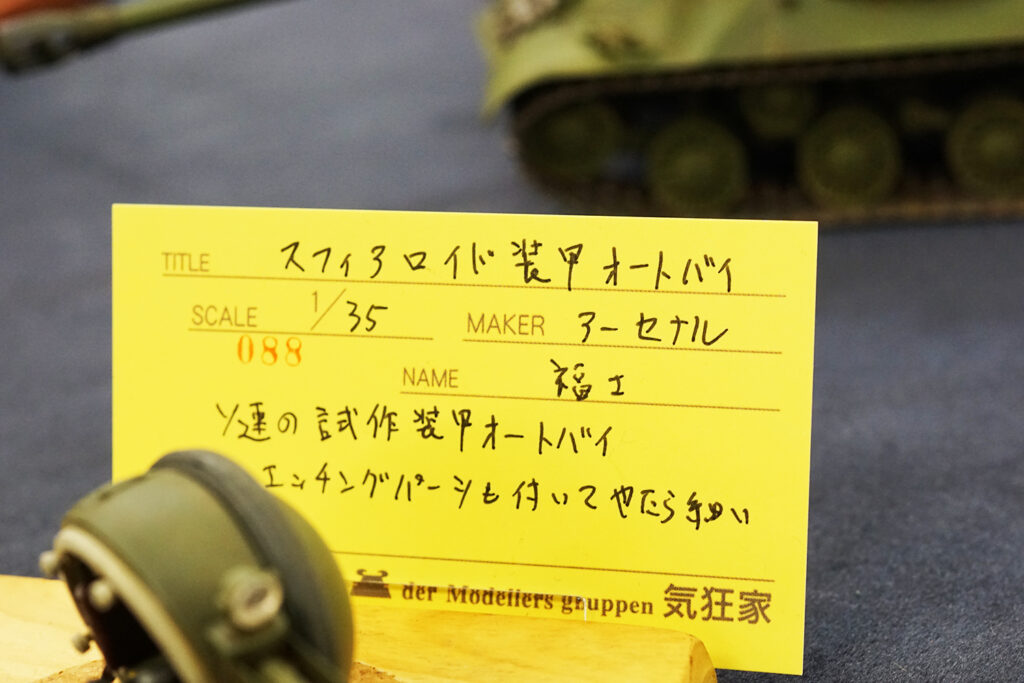 TITLE スフィアロイド装甲オートバイ
SCALE 1/35 MAKER アーセナル
088
NAME 福士
ソ連の試作装甲オートバイ
エッチングパーツも付いてやたら細い
der Modellers gruppen 気狂家